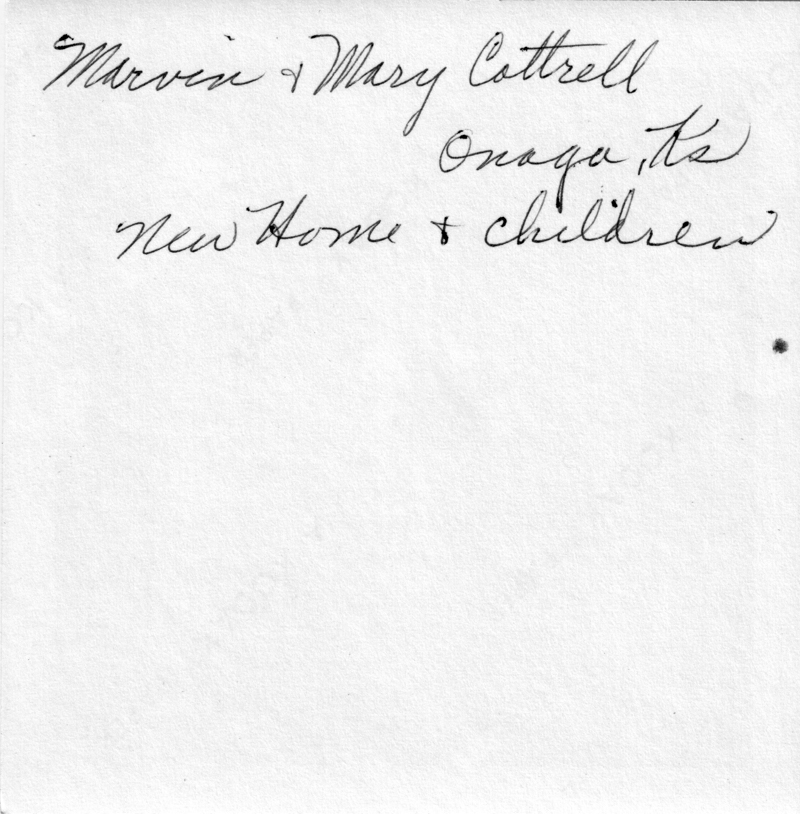 Marvin & Mary Cottrell
Onaga, Ks
New Home & children